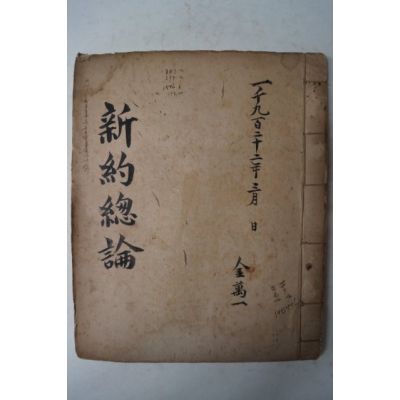 一千九百二十二年三月 日
金萬一
新約總論